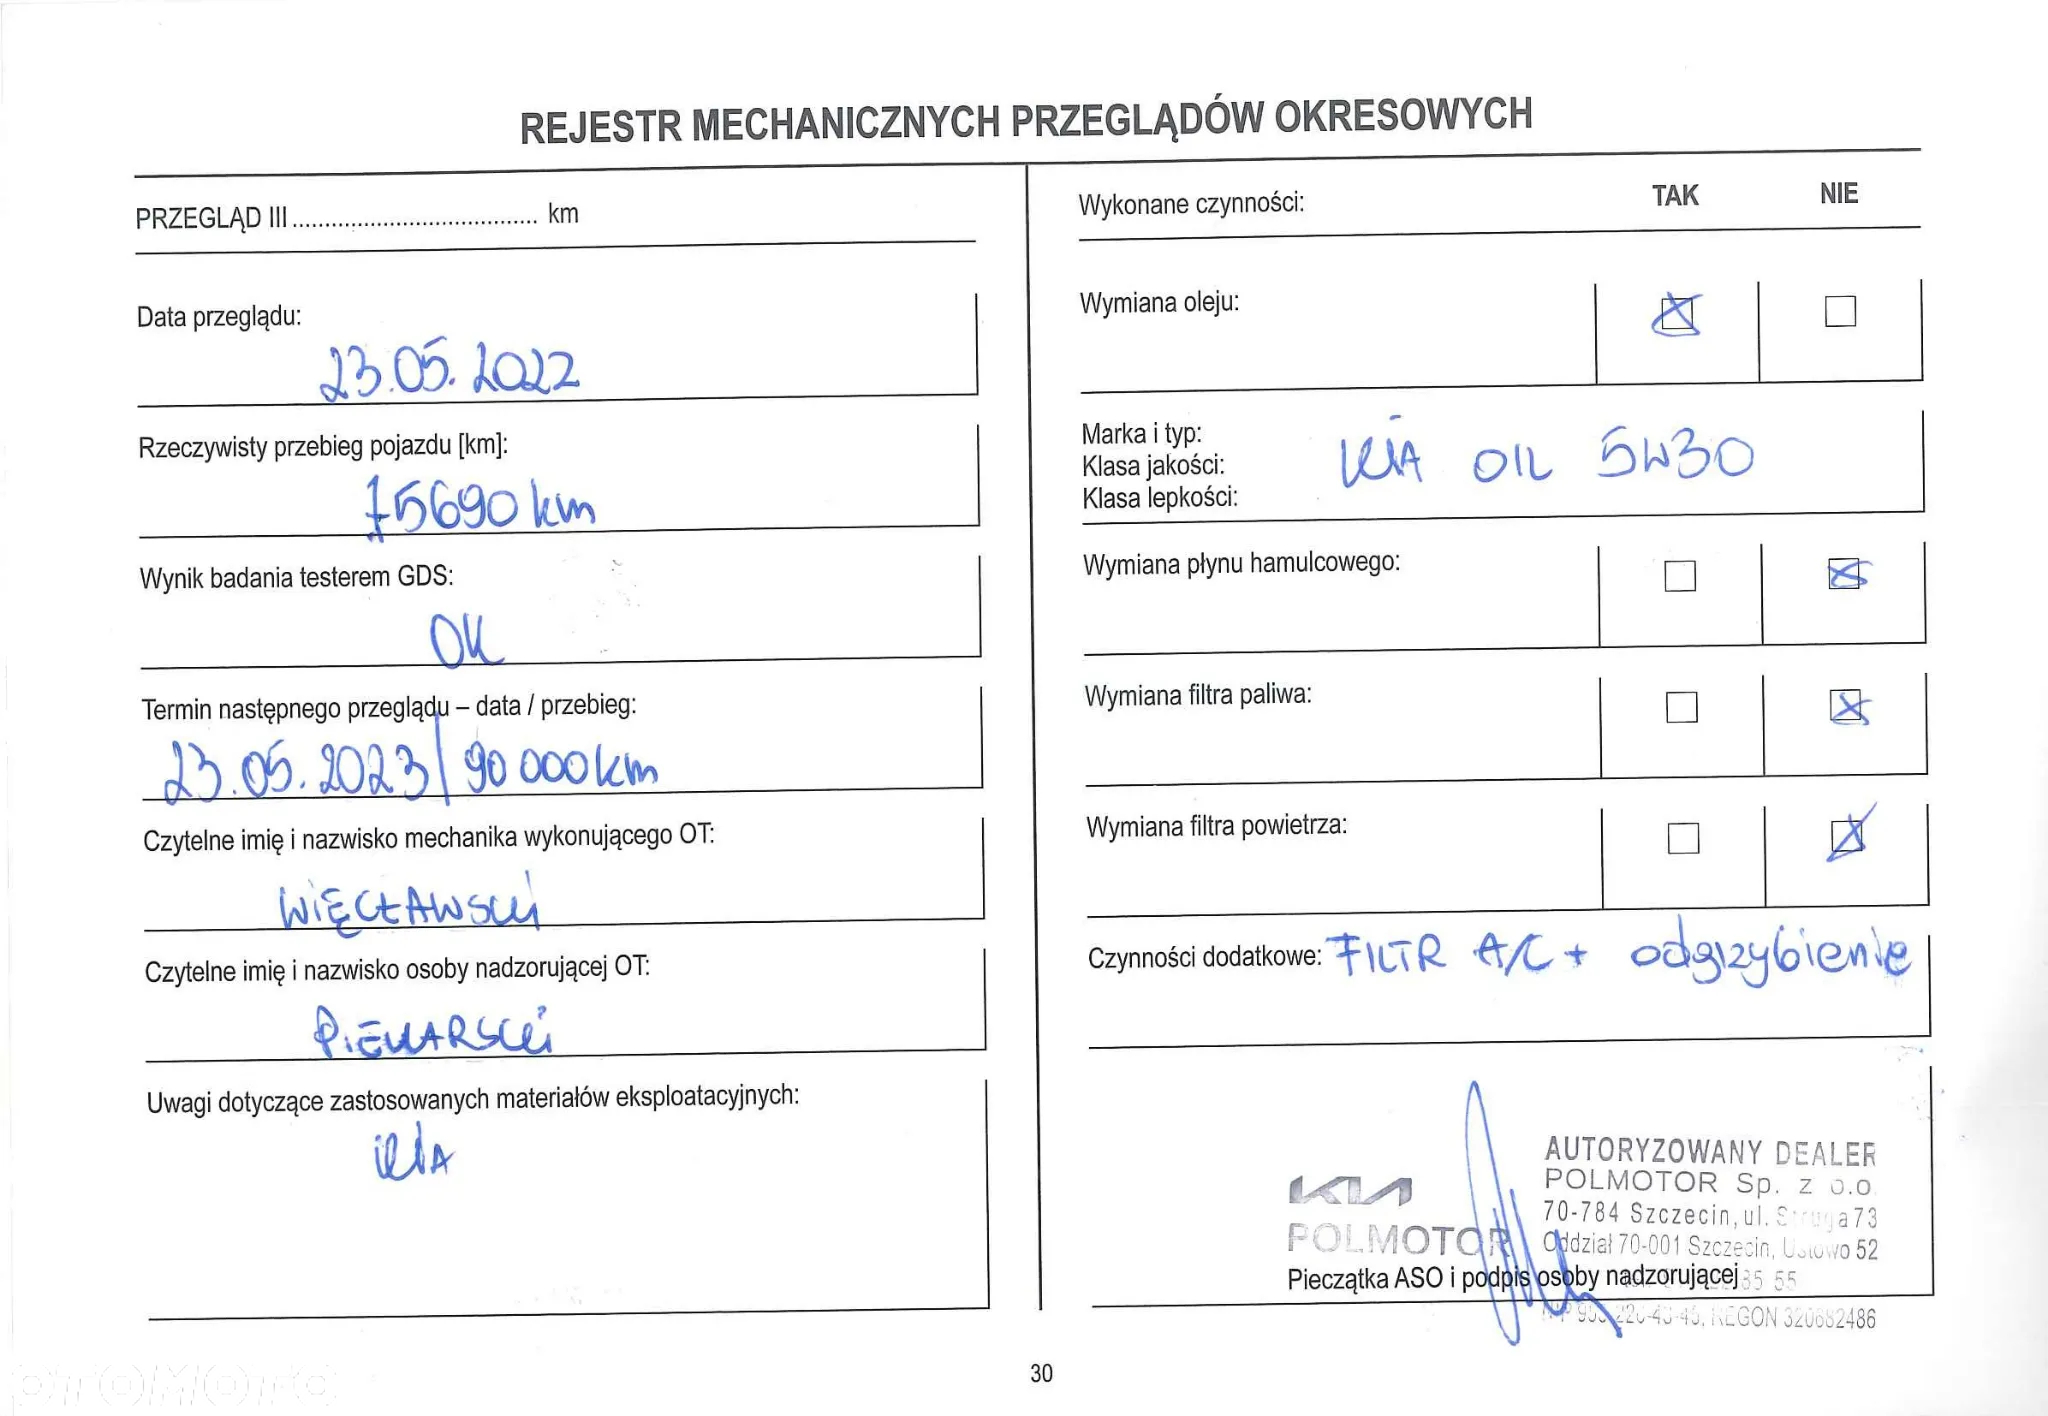 REJESTR MECHANICZNYCH PRZEGLĄDÓW OKRESOWYCH
PRZEGLĄD III ...................................... km
Data przeglądu:
23.05.2022
Rzeczywisty przebieg pojazdu [km]:
75690 km
Wynik badania testerem GDS:
OK
Termin następnego przeglądu – data / przebieg:
23.05.2023/90 000 km
Czytelne imię i nazwisko mechanika wykonującego OT:
WIĘCŁAWSKI
Czytelne imię i nazwisko osoby nadzorującej OT:
PIEKARSKI
Uwagi dotyczące zastosowanych materiałów eksploatacyjnych:
KIA
Wykonane czynności: TAK NIE
Wymiana oleju:
Marka i typ:
Klasa jakości: KIA OIL 5W30
Klasa lepkości:
Wymiana płynu hamulcowego:
Wymiana filtra paliwa:
Wymiana filtra powietrza:
Czynności dodatkowe: FILTR A/C + odgrzybienie
KIA
POLMOTOR
AUTORYZOWANY DEALER
POLMOTOR Sp. z o.o.
70-784 Szczecin, ul. Struga 73
Oddział 70-001 Szczecin, Ustowo 52
Pieczątka ASO i podpis osoby nadzorującej
35 55
REGON 320682486
30
OTOMOTO